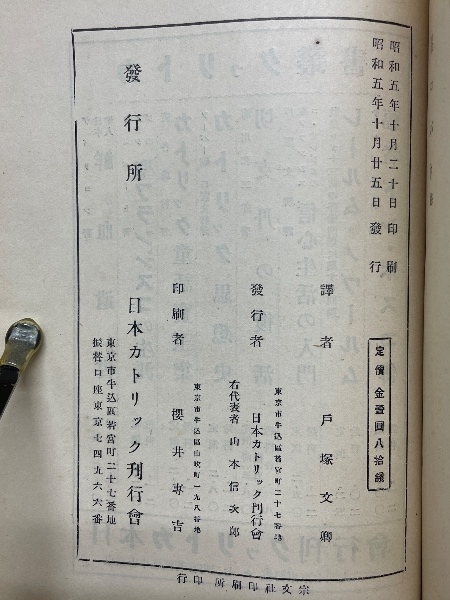 昭和五年十月二十日印刷
昭和五年十月廿五日發行
定價 金壹圓八拾錢
譯者 戸塚文卿
東京市牛込區若宮町二十七番地
發行者 日本カトリック刊行會
右代表者 山本信次郎
東京市牛込區山吹町一九八番地
印刷者 櫻井專吉
發行所 日本カトリック刊行會
東京市牛込區若宮町二十七番地
振替口座東京七四九六六番
宗文社印刷所印行